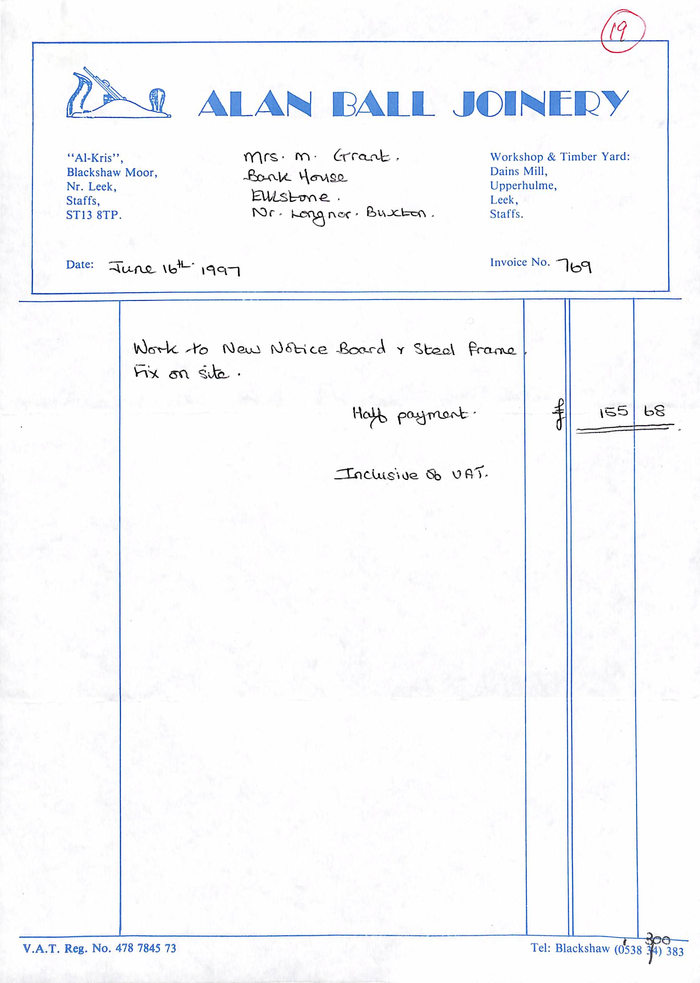 19
ALAN BALL JOINERY
"Al-Kris",
Blackshaw Moor,
Nr. Leek,
Staffs,
ST13 8TP.
Mrs. M. Grant.
Bank House
Ellkstone.
Nr. Longnor. Buxton.
Workshop & Timber Yard:
Dains Mill,
Upperhulme,
Leek,
Staffs.
Date: June 16th. 1997
Invoice No. 769
Work to New Notice Board & Steel Frame.
Fix on site.
Half payment. £ 155 68
Inclusive of VAT.
V.A.T. Reg. No. 478 7845 73
300
Tel: Blackshaw (0538 34) 383